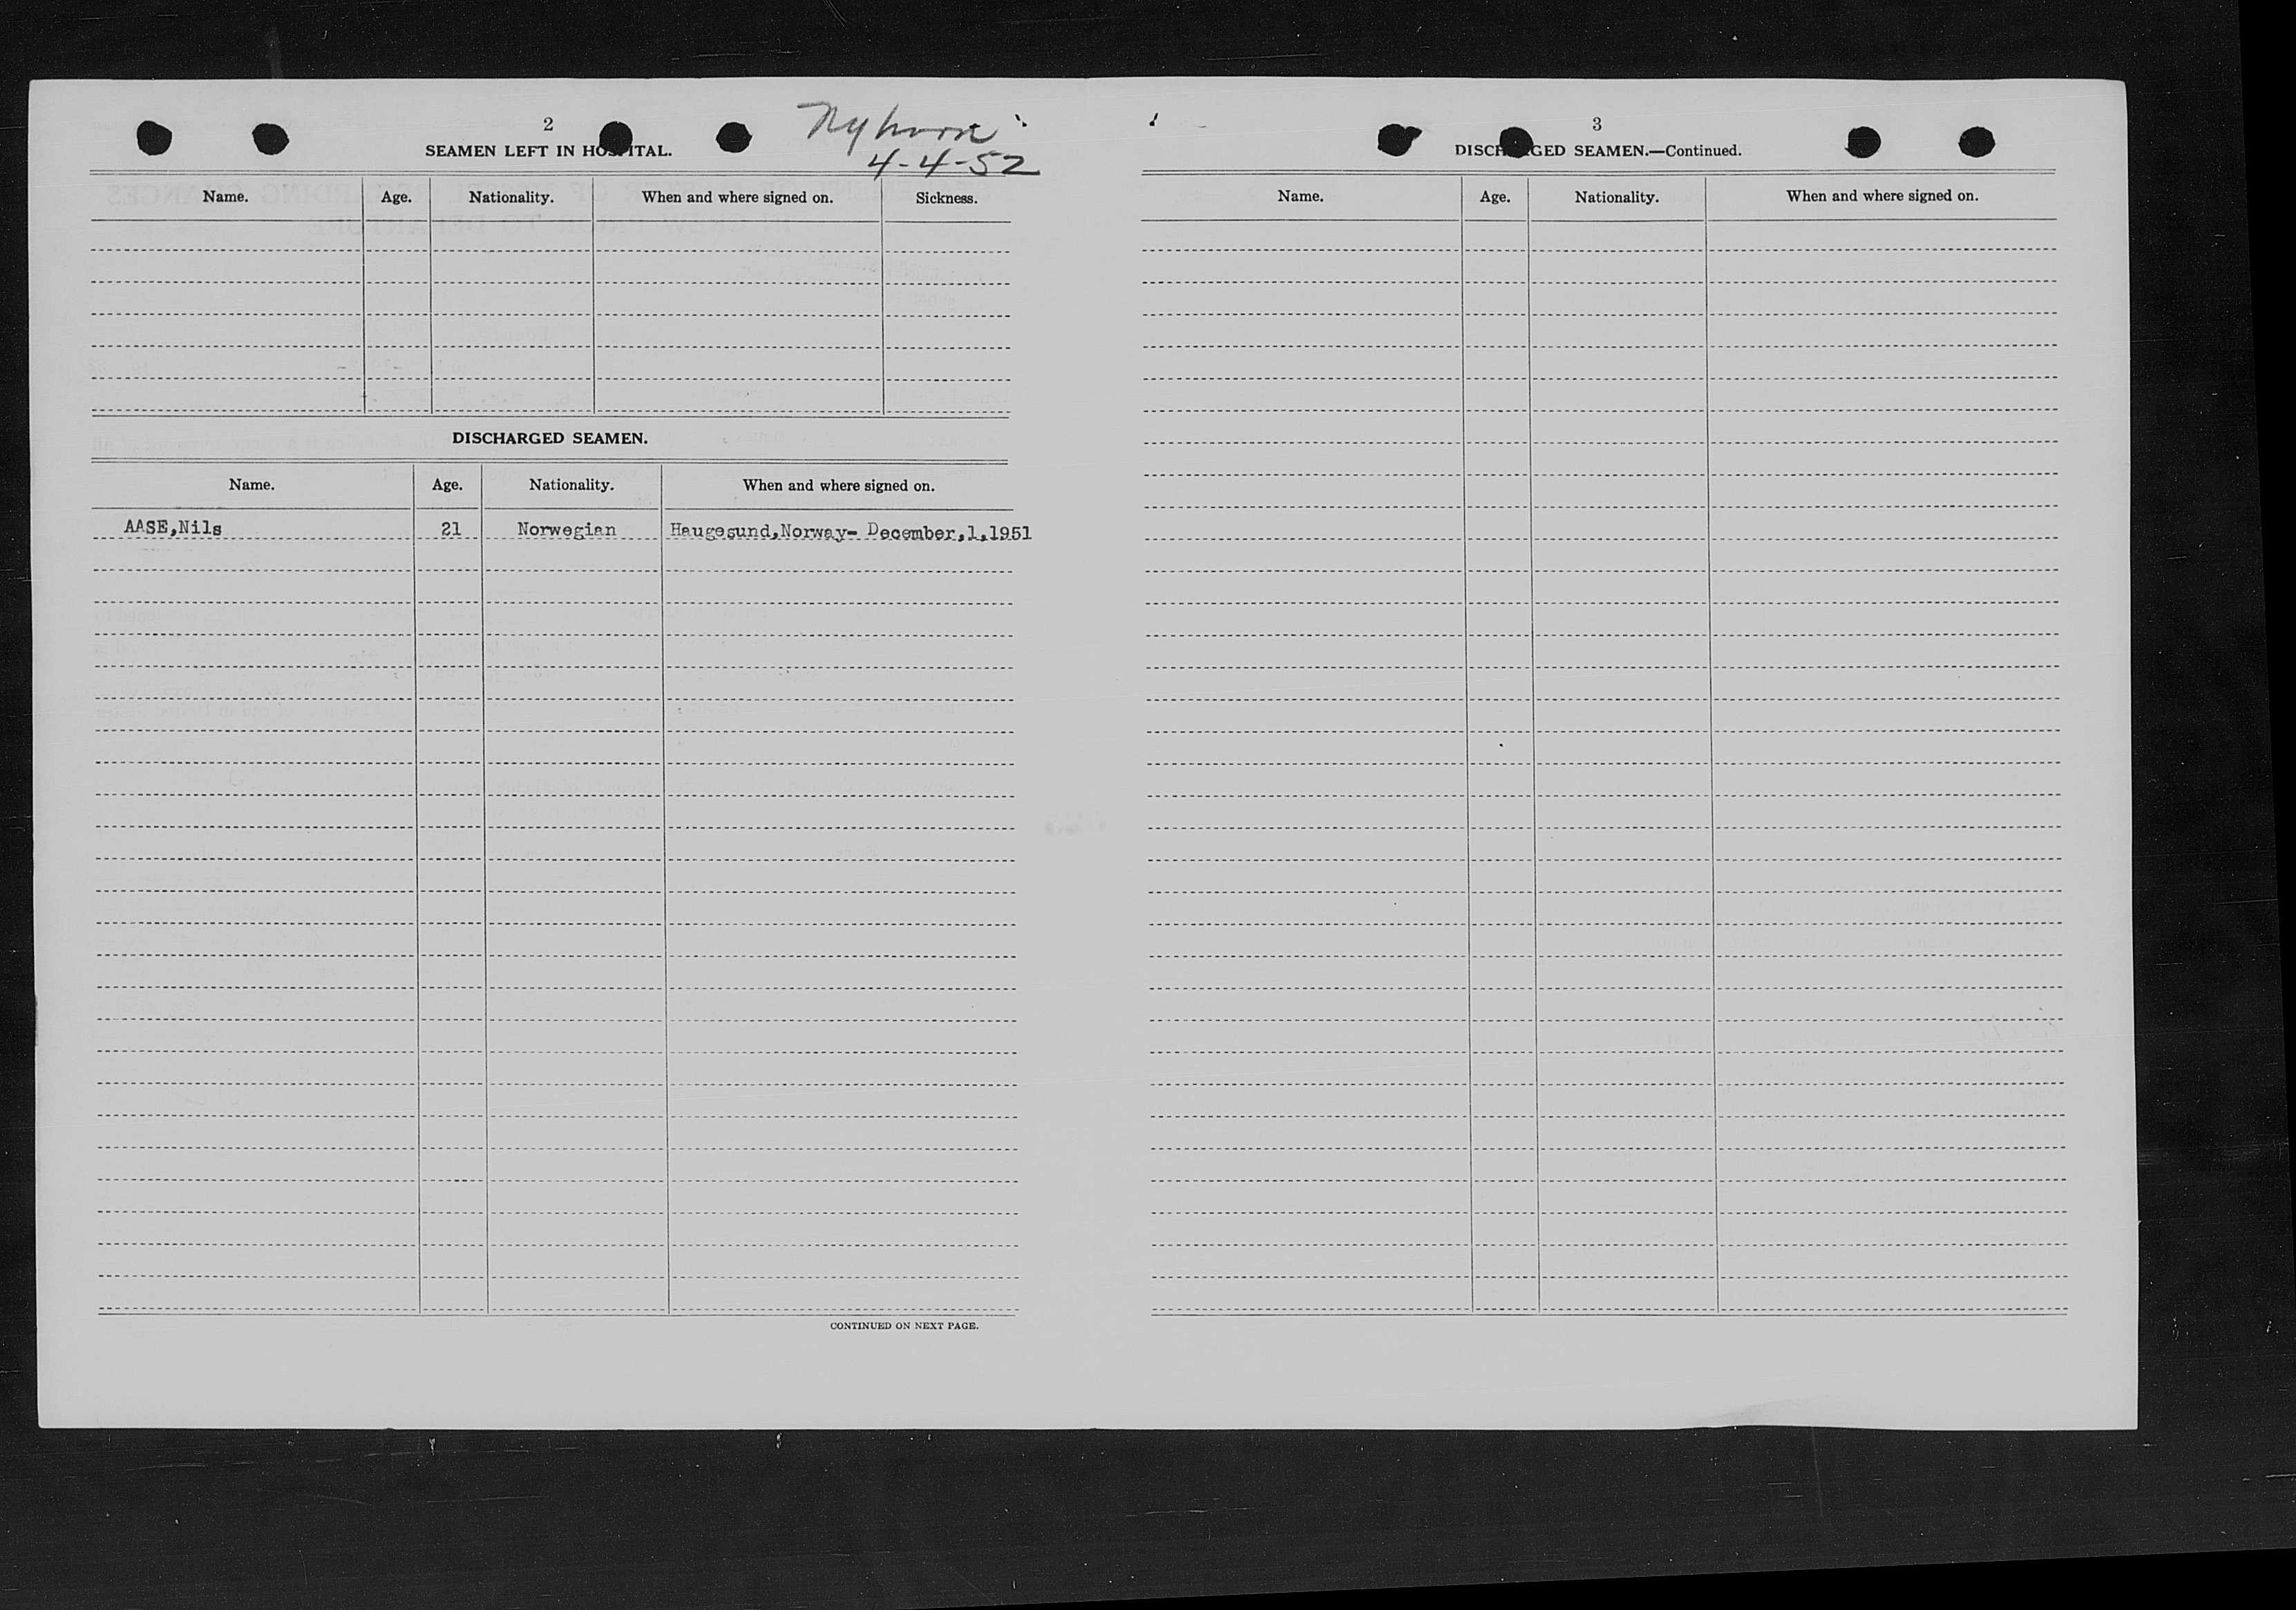 2
Nyhorn
4-4-52
SEAMEN LEFT IN HOSPITAL.
Name. Age. Nationality. When and where signed on. Sickness.
DISCHARGED SEAMEN.
Name. Age. Nationality. When and where signed on.
AASE,Nils 21 Norwegian Haugesund,Norway- December,1,1951
CONTINUED ON NEXT PAGE.
3
DISCHARGED SEAMEN.—Continued.
Name. Age. Nationality. When and where signed on.